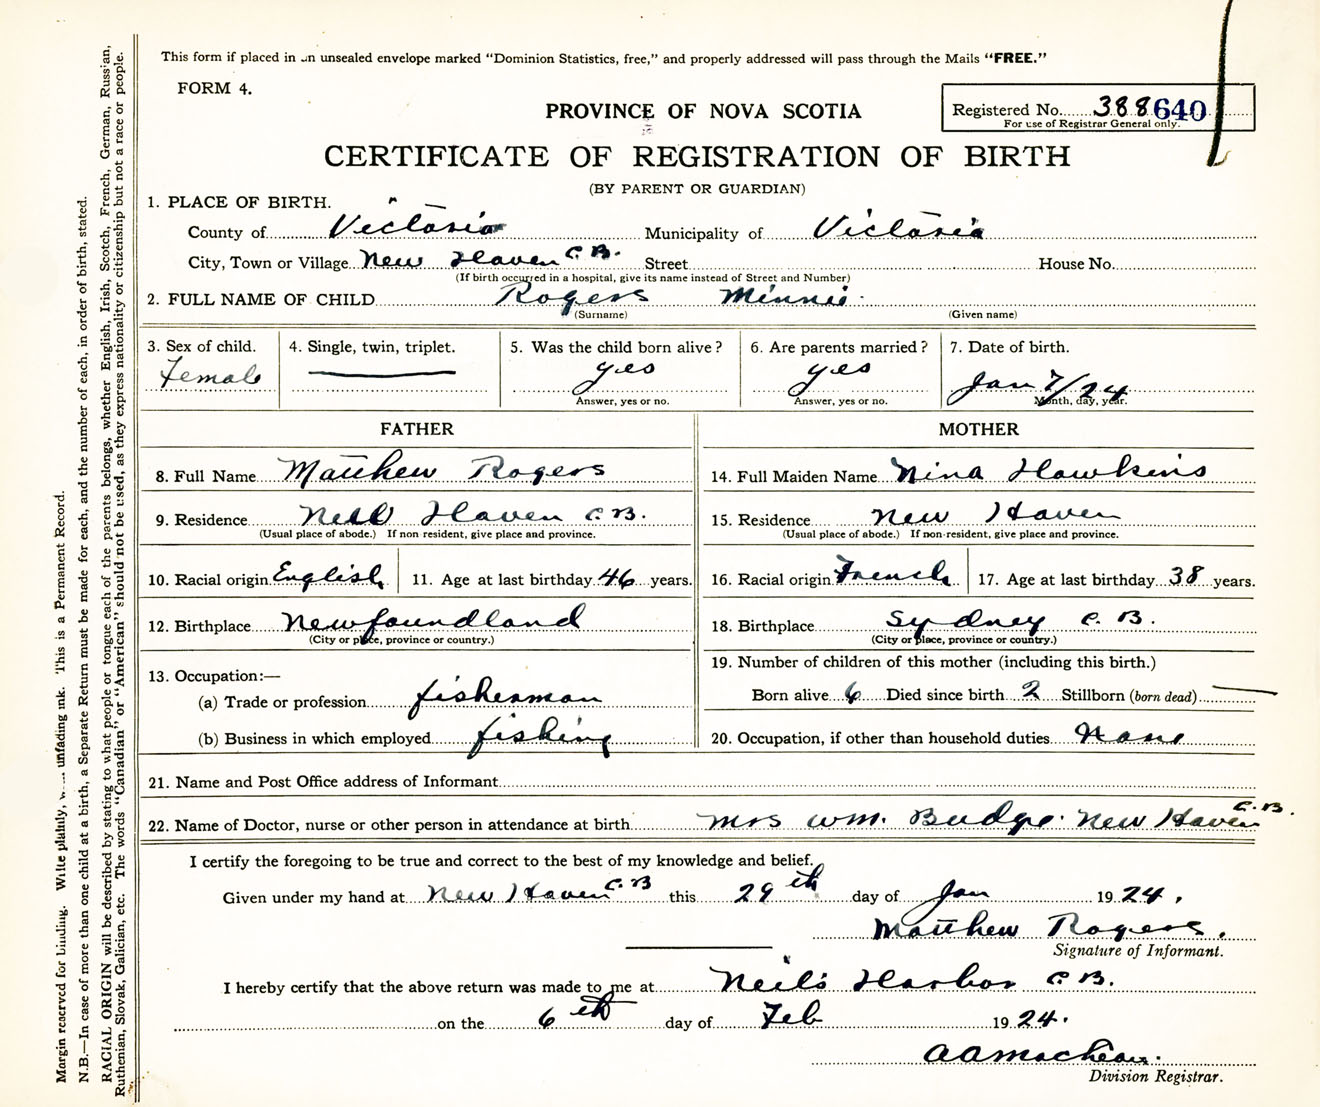 This form if placed in an unsealed envelope marked "Dominion Statistics, free," and properly addressed will pass through the Mails "FREE."
FORM 4.
PROVINCE OF NOVA SCOTIA
Registered No. 388 640
For use of Registrar General only.
CERTIFICATE OF REGISTRATION OF BIRTH
(BY PARENT OR GUARDIAN)
1. PLACE OF BIRTH.
County of Victoria Municipality of Victoria
City, Town or Village New Haven C.B. Street House No.
(If birth occurred in a hospital, give its name instead of Street and Number)
2. FULL NAME OF CHILD Rogers Minnie
(Surname) (Given name)
3. Sex of child. 4. Single, twin, triplet. 5. Was the child born alive? 6. Are parents married? 7. Date of birth.
Female yes yes Jan 7/24
Answer, yes or no. Answer, yes or no. Month, day, year.
FATHER MOTHER
8. Full Name Matthew Rogers 14. Full Maiden Name Nina Hawkins
9. Residence Haven C.B. 15. Residence New Haven
(Usual place of abode.) If non-resident, give place and province. (Usual place of abode.) If non-resident, give place and province.
10. Racial origin English 11. Age at last birthday 46 years. 16. Racial origin French 17. Age at last birthday 38 years.
12. Birthplace Newfoundland 18. Birthplace Sydney C.B.
(City or place, province or country.) (City or place, province or country.)
13. Occupation:— 19. Number of children of this mother (including this birth.)
(a) Trade or profession fisherman Born alive 6 Died since birth 2 Stillborn (born dead)
(b) Business in which employed fishing 20. Occupation, if other than household duties None
21. Name and Post Office address of Informant
22. Name of Doctor, nurse or other person in attendance at birth Mrs Wm. Budge. New Haven C.B.
I certify the foregoing to be true and correct to the best of my knowledge and belief.
Given under my hand at New Haven C.B this 29th day of Jan 1924.
Matthew Rogers.
Signature of Informant.
I hereby certify that the above return was made to me at Neil's Harbor C.B.
on the 6th day of Feb 1924.
Division Registrar.
Margin reserved for binding. Write plainly, unfading ink. This is a Permanent Record.
N.B.—In case of more than one child at a birth, a Separate Return must be made for each, and the number of each, in order of birth, stated.
RACIAL ORIGIN will be described by stating to what people or tongue each of the parents belongs, whether English, Irish, Scotch, French, German, Russian,
Ruthenian, Slovak, Galician, etc. The words "Canadian" or "American" should not be used, as they express nationality or citizenship but not a race or people.